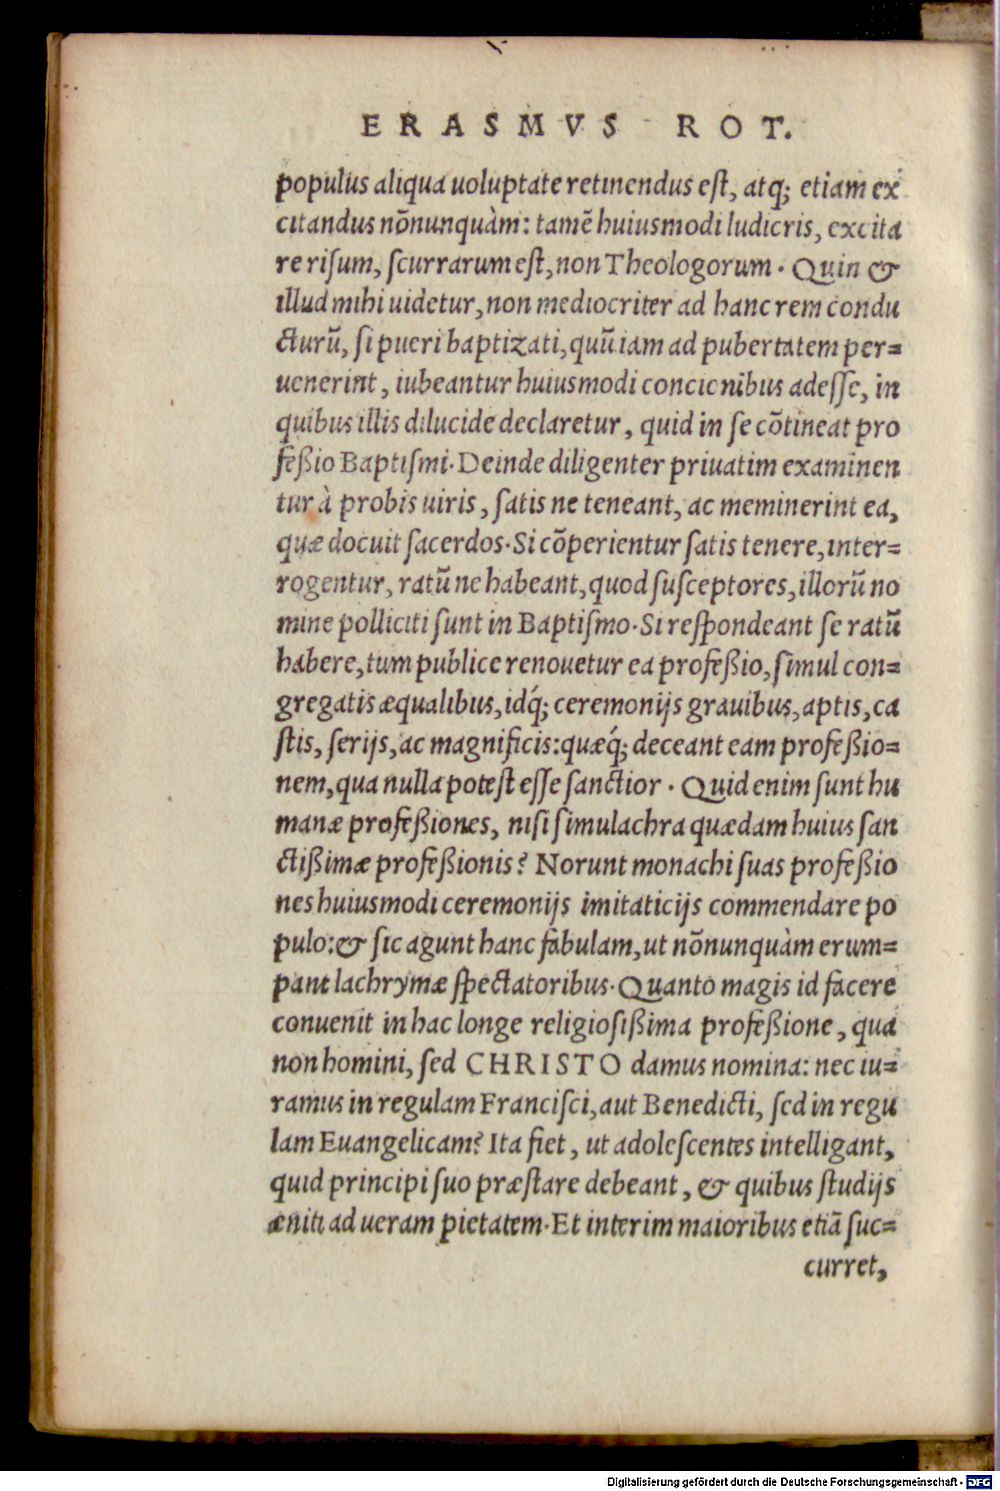 ERASMVS ROT.
populus aliqua uoluptate retinendus eſt, atq; etiam ex
citandus nõnunquàm: tamẽ huiusmodi ludicris, excita
re riſum, ſcurrarum eſt, non Theologorum. Quin &
illud mihi uidetur, non mediocriter ad hanc rem condu
cturũ, ſi pueri baptizati, quũ iam ad pubertatem per=
uenerint, iubeantur huiusmodi concionibus adeſſe, in
quibus illis dilucide declaretur, quid in ſe cõtineat pro
feßio Baptiſmi. Deinde diligenter priuatim examinen
tur à probis uiris, ſatis ne teneant, ac meminerint ea,
quæ docuit ſacerdos. Si cõperientur ſatis tenere, inter=
rogentur, ratũ ne habeant, quod ſuſceptores, illorũ no
mine polliciti ſunt in Baptiſmo. Si reſpondeant ſe ratũ
habere, tum publice renouetur ea profeßio, ſimul con=
gregatis æqualibus, idq́; ceremonijs grauibus, aptis, ca
ſtis, ſerijs, ac magnificis: quæq́; deceant eam profeßio=
nem, qua nulla poteſt eſſe ſanctior. Quid enim ſunt hu
manæ profeßiones, niſi ſimulachra quædam huius ſan
ctißimæ profeßionis? Norunt monachi ſuas profeßio
nes huiusmodi ceremonijs imitaticijs commendare po
pulo: & ſic agunt hanc fabulam, ut nõnunquàm erum=
pant lachrymæ ſpectatoribus. Quanto magis id facere
conuenit in hac longe religioſißima profeßione, qua
non homini, ſed CHRISTO damus nomina: nec iu=
ramus in regulam Franciſci, aut Benedicti, ſed in regu
lam Euangelicam? Ita fiet, ut adoleſcentes intelligant,
quid principi ſuo præſtare debeant, & quibus ſtudijs
æniti ad ueram pietatem. Et interim maioribus etiã ſuc=
curret,
Digitalisierung gefördert durch die Deutsche Forschungsgemeinschaft - DFG